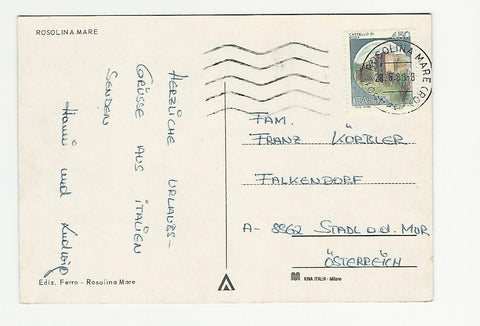 ROSOLINA MARE
CASTELLO DI
450
ROSOLINA MARE (RO)
HERZLICHE URLAUBS-
GRÜSSE AUS ITALIEN
SENDEN
Hanni und Ludwig
FAM.
FRANZ KÖRBLER
FALKENDORF
A- 8862 STADL a.d. MUR
ÖSTERREICH
Ediz. Ferro - Rosolina Mare
KINA ITALIA - Milano